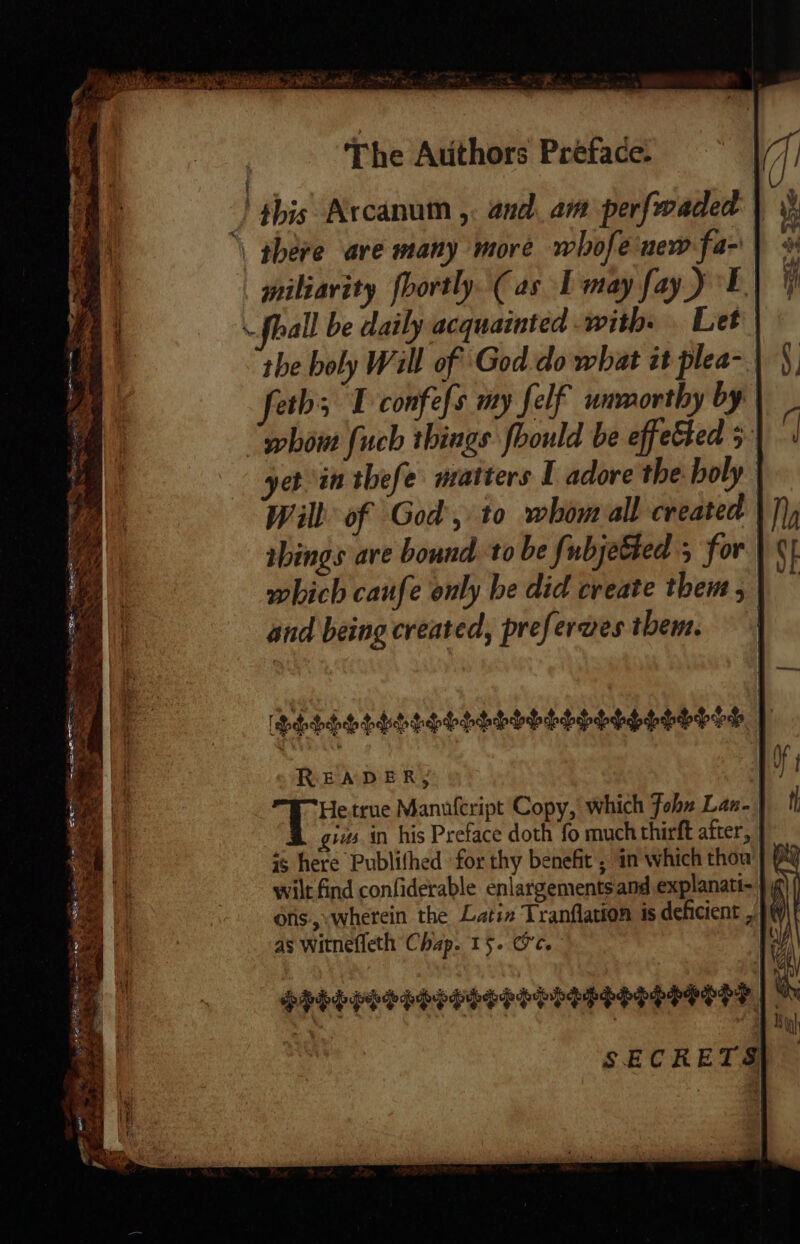 The Authors Preface.
this Arcanum, and am perſwaded
there are many more whoſe new fa-
miliarity ſhortly (as I may ſay) I
ſhall be daily acquainted with. Let
the holy Will of God do what it plea-
ſeth; I confeſs my ſelf unworthy by
whom ſuch things ſhould be effected;
yet in theſe matters I adore the holy
Will of God, to whom all created
things are bound to be ſubjected; for
which cauſe only he did create them,
and being created, preſerves them.
READER,
THe true Manuſcript Copy, which John Lan-
gius in his Preface doth ſo much thirſt after,
is here Publiſhed for thy benefit, in which thou
wilt find conſiderable enlargements and explanati-
ons, wherein the Latin Tranſlation is deficient,
as witneſſeth Chap. 15. &c.
SECRETS